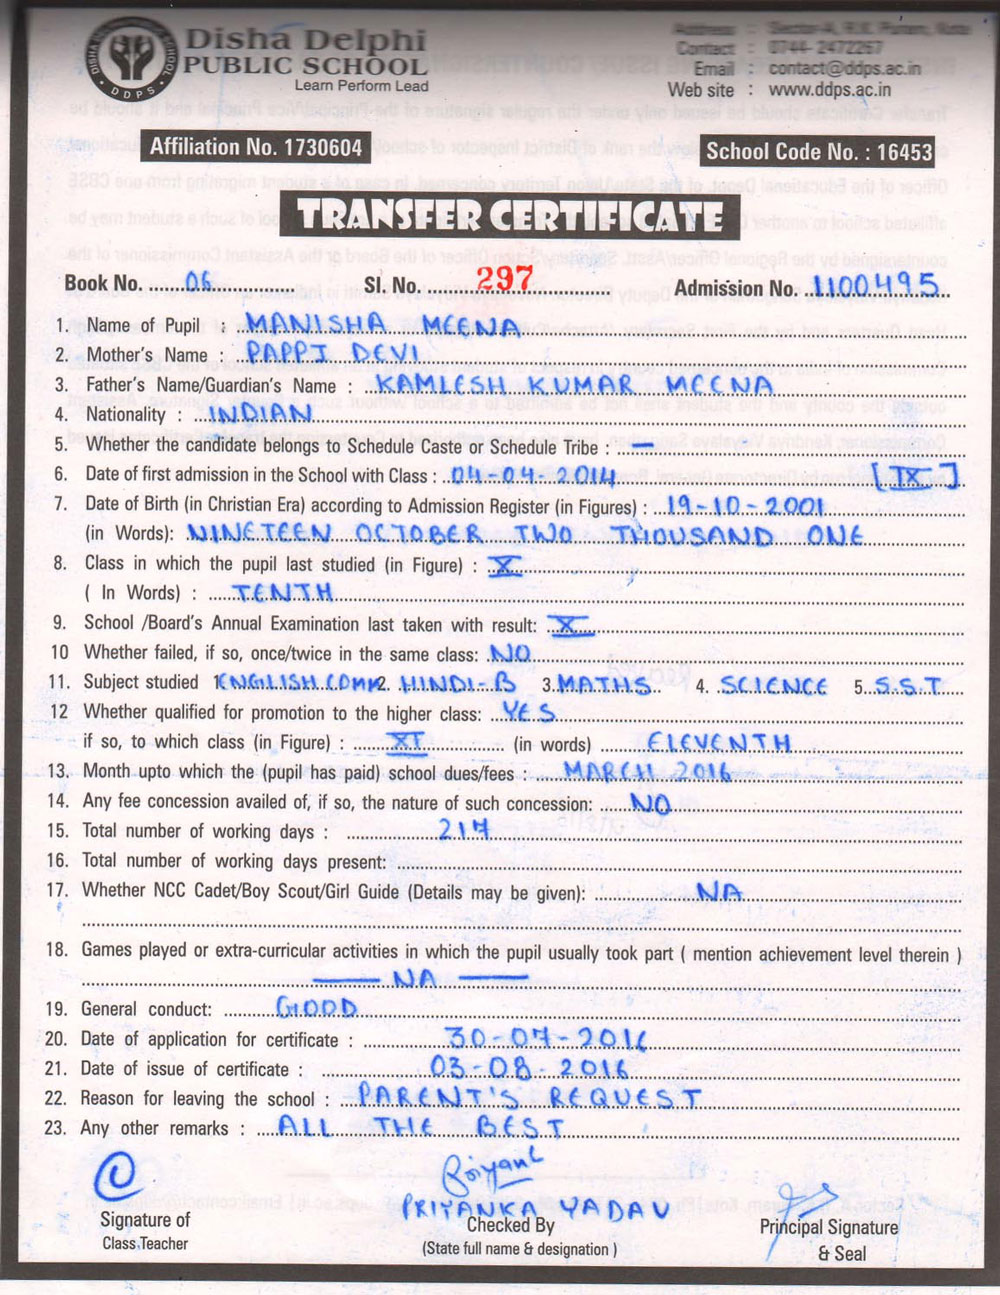 Disha Delphi
PUBLIC SCHOOL
Learn Perform Lead
DDPS
Address : Sector-A, R.K. Puram, Kota
Contact : 0744-2472267
Email : contact@ddps.ac.in
Web site : www.ddps.ac.in
Affiliation No. 1730604
School Code No. : 16453
TRANSFER CERTIFICATE
Book No. 06 Sl. No. 297 Admission No. 1100495
1. Name of Pupil : MANISHA MEENA
2. Mother's Name : PAPPI DEVI
3. Father's Name/Guardian's Name : KAMLESH KUMAR MEENA
4. Nationality : INDIAN
5. Whether the candidate belongs to Schedule Caste or Schedule Tribe : —
6. Date of first admission in the School with Class : 04-04-2014 [IX]
7. Date of Birth (in Christian Era) according to Admission Register (in Figures) : 19-10-2001
(in Words): NINETEEN OCTOBER TWO THOUSAND ONE
8. Class in which the pupil last studied (in Figure) : X
( In Words) : TENTH
9. School /Board's Annual Examination last taken with result: X
10 Whether failed, if so, once/twice in the same class: NO
11. Subject studied 1 ENGLISH COMM 2. HINDI-B 3. MATHS 4. SCIENCE 5. S.S.T
12 Whether qualified for promotion to the higher class: YES
if so, to which class (in Figure) : XI (in words) ELEVENTH
13. Month upto which the (pupil has paid) school dues/fees MARCH 2016
14. Any fee concession availed of, if so, the nature of such concession: NO
15. Total number of working days : 217
16. Total number of working days present:
17. Whether NCC Cadet/Boy Scout/Girl Guide (Details may be given): NA
18. Games played or extra-curricular activities in which the pupil usually took part ( mention achievement level therein )
— NA —
19. General conduct: GOOD
20. Date of application for certificate : 30-07-2016
21. Date of issue of certificate : 03-08-2016
22. Reason for leaving the school : PARENT'S REQUEST
23. Any other remarks : ALL THE BEST
PRIYANKA YADAV
Signature of
Class Teacher
Checked By
(State full name & designation )
Principal Signature
& Seal